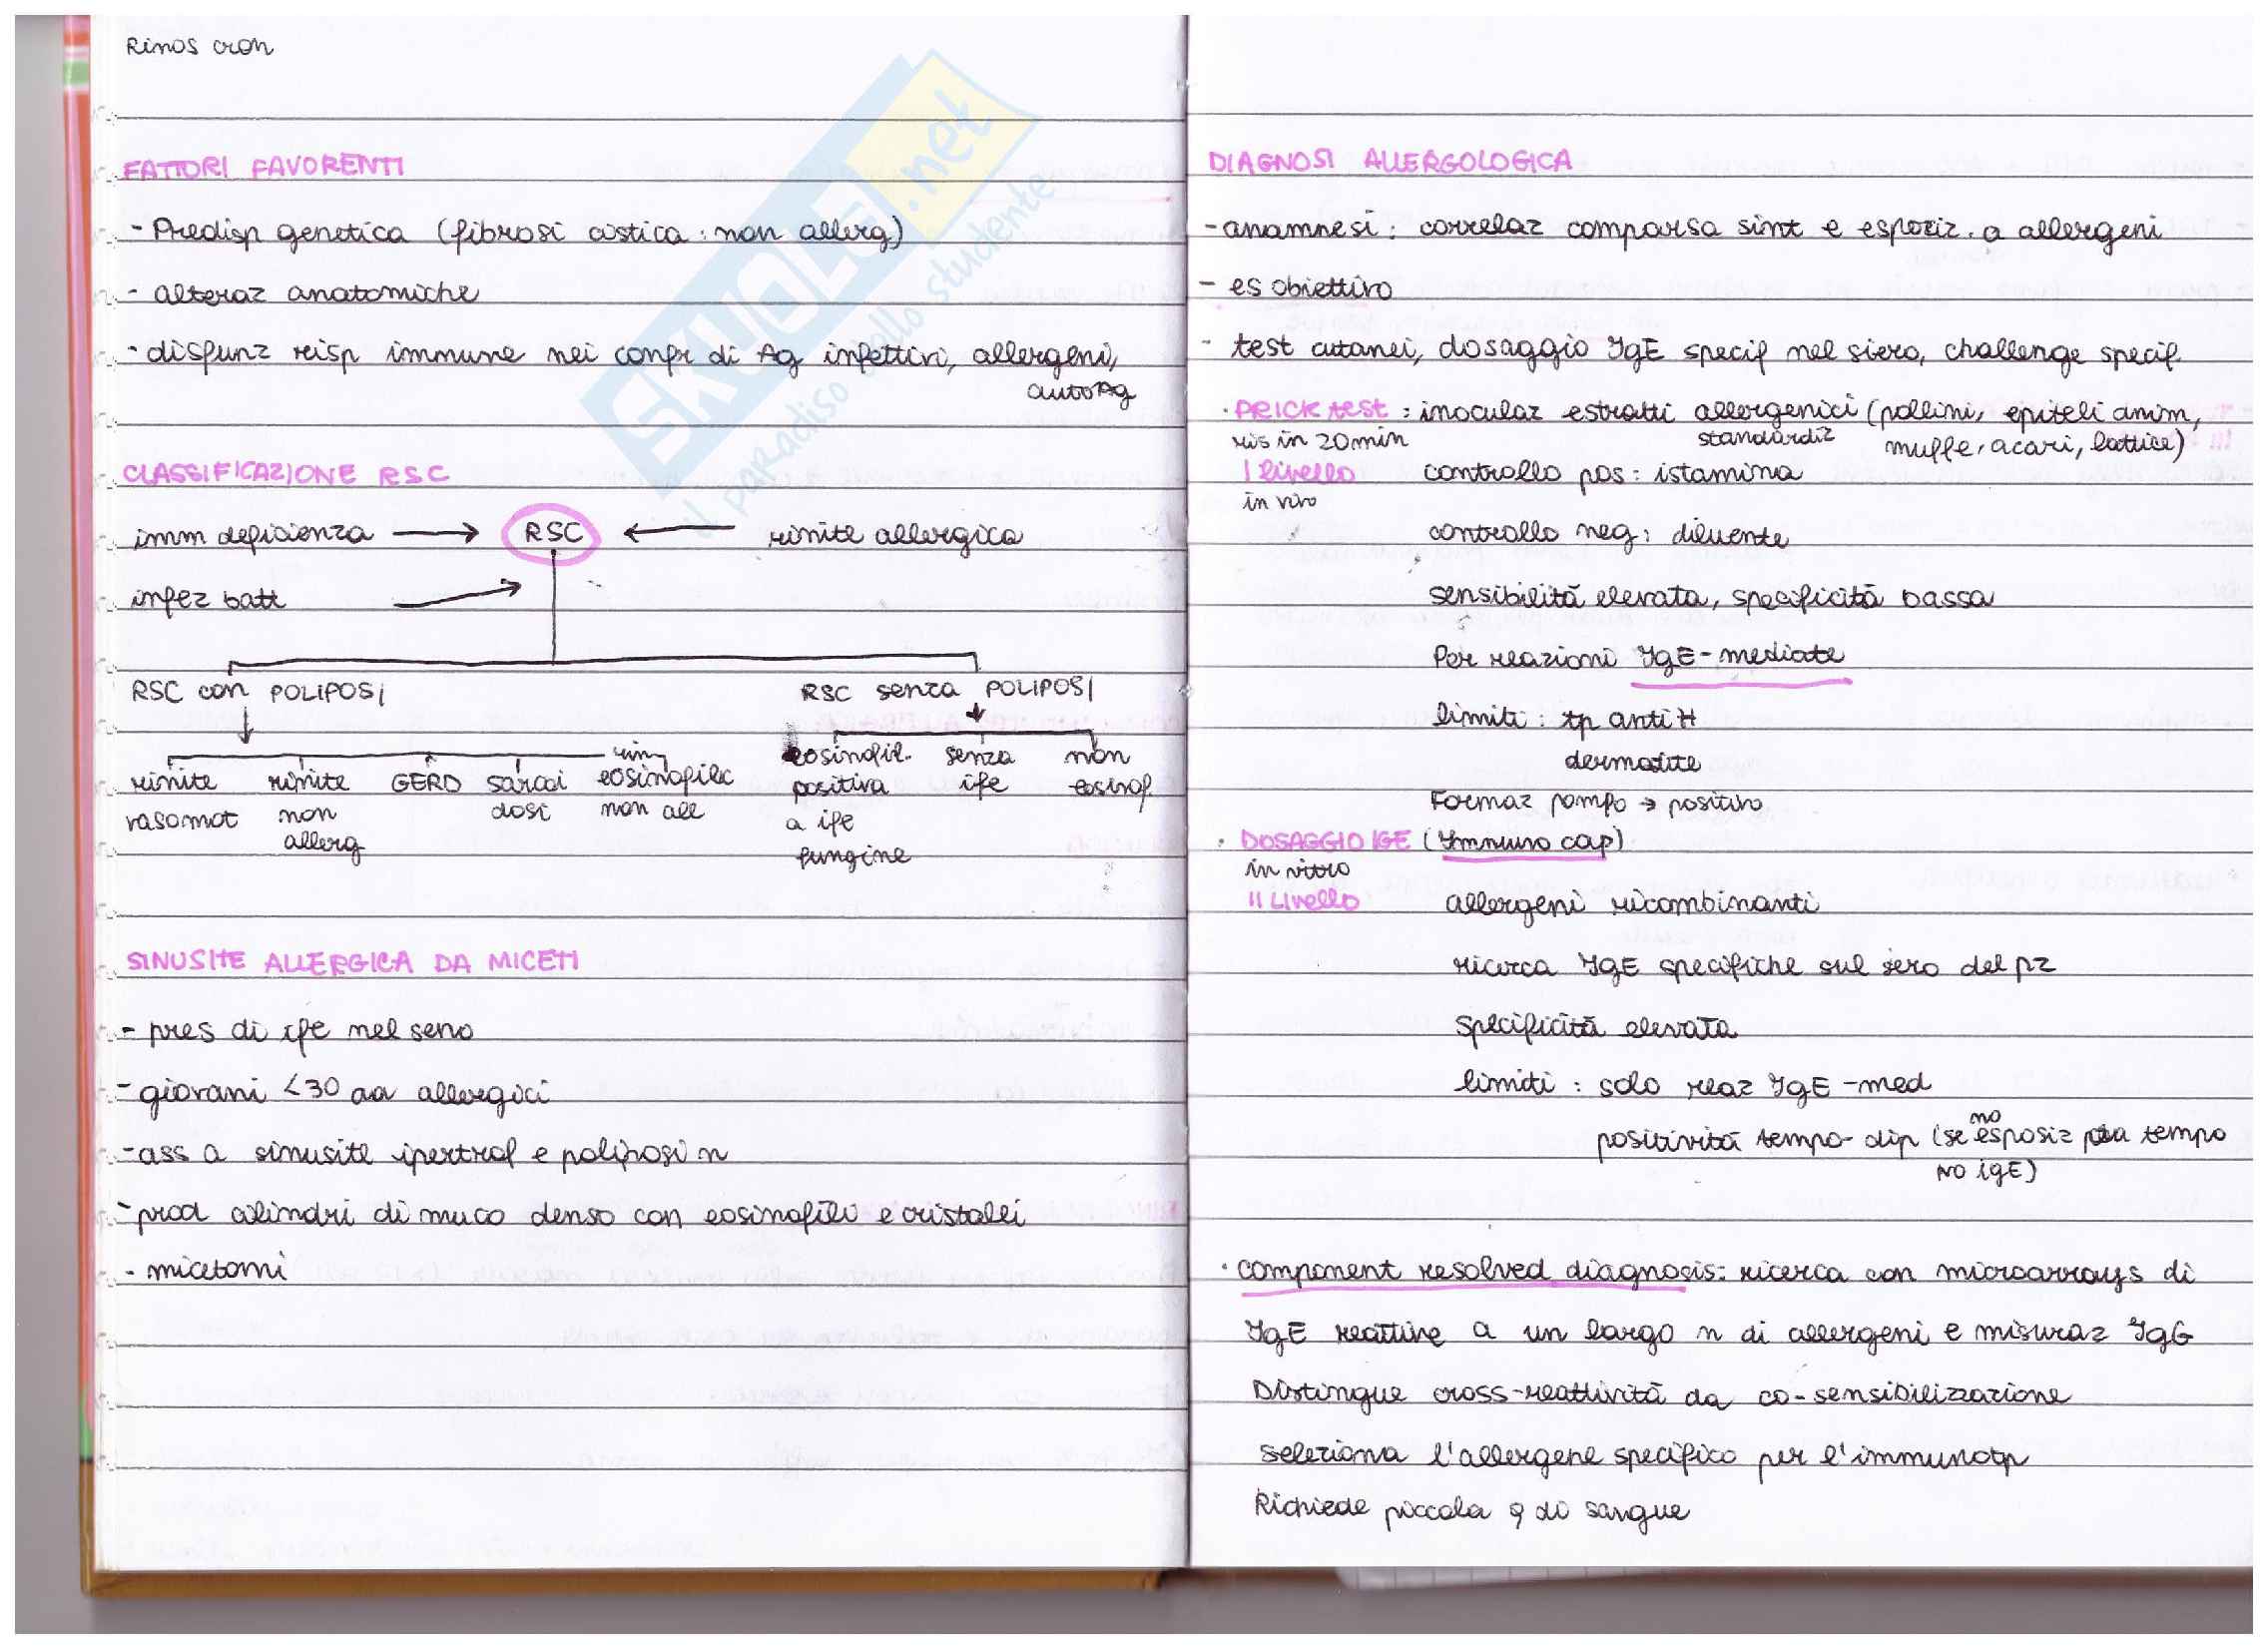 Rinos cron
FATTORI FAVORENTI
- Predisp genetica (fibrosi cistica: non allerg)
- alteraz anatomiche
- disfunz risp immune nei confr di Ag infettivi, allergeni,
autoAg
CLASSIFICAZIONE RSC
imm deficienza → RSC ← rinite allergica
infez batt →
RSC con POLIPOSI RSC senza POLIPOSI
rinite rinite GERD sarcoi rin eosinofil. senza non
vasomot non dosi eosinofila positiva ife eosinof.
allerg non all a ife
fungine
SINUSITE ALLERGICA DA MICETI
- pres di ife nel seno
- giovani <30 aa allergici
- ass a sinusite ipertrof e poliposi n
- prod cilindri di muco denso con eosinofili e cristalli
- micetomi
DIAGNOSI ALLERGOLOGICA
- anamnesi: correlaz comparsa sint e esposiz. a allergeni
- es obiettivo
- test cutanei, dosaggio IgE specif nel siero, challenge specif
· PRICK test: inoculaz estratti allergenici (pollini, epiteli anim,
ris in 20min standardiz muffe, acari, lattice)
I livello controllo pos: istamina
in vivo
controllo neg: diluente
sensibilità elevata, specificità bassa
Per reazioni IgE-mediate
limiti: tp anti H
dermatite
Formaz pomfo → positivo
· DOSAGGIO IGE (Immuno cap)
in vitro
II Livello allergeni ricombinanti
ricerca IgE specifiche sul siero del pz
Specificità elevata
limiti: solo reaz IgE-med
positività tempo-dip (se no esposiz da tempo
NO IgE)
· component resolved diagnosis: ricerca con microarrays di
IgE reattive a un largo n di allergeni e misuraz IgG
Distingue cross-reattività da co-sensibilizzazione
Seleziona l'allergene specifico per l'immunotp
Richiede piccola q di sangue
SKUOLA.net
il paradiso dello studente